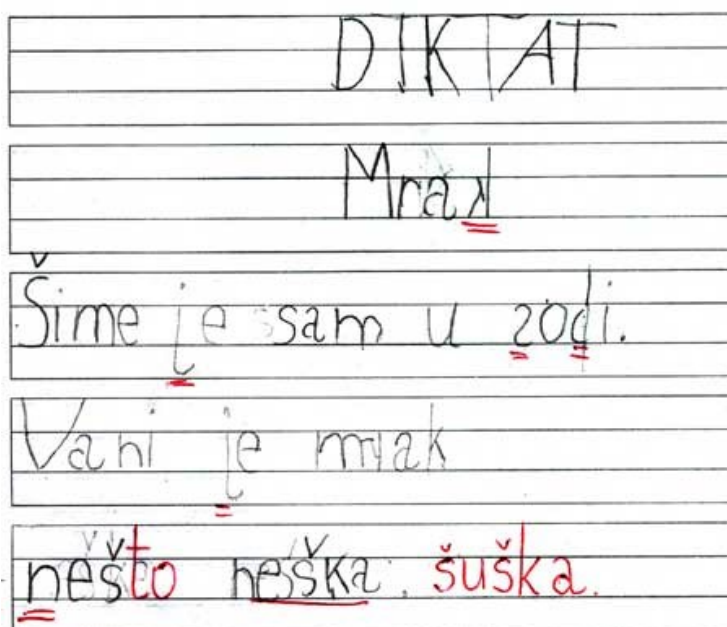 DIKTAT
Mrak
Šime je sam u zodi.
Vani je mrak
nešto neška. šuška.